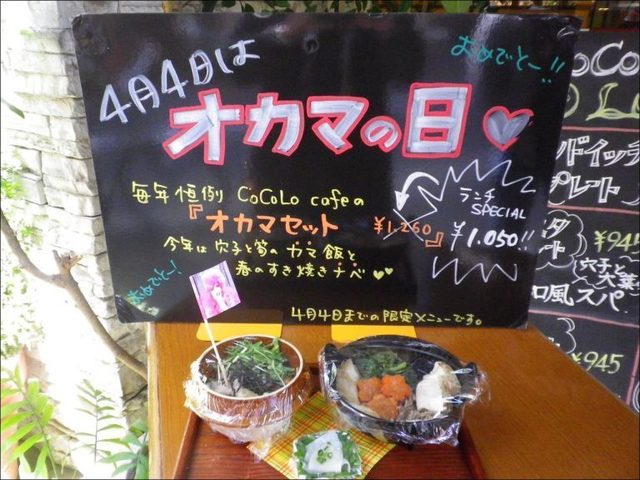 4月4日は
おめでとー!!
オカマの日♡
毎年恒例 CoCoLo cafeの
『オカマセット ¥1,260』
ランチ
SPECIAL
¥1,050!!
今年は穴子と筍のカマ飯と
春のすき焼きナベ♥♥
おめでとー!
4月4日までの限定メニューです。
CoCo
ドイッチ
プレート
¥945
穴子と
大葉
和風スパ
¥945